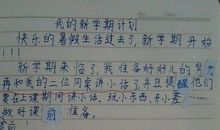 我的新学期计划
快乐的暑假生活过去了,新学期开始
了!!!
新学期来临了,我准备好好儿的
再和我的二位同桌讲小话了,并且提醒他们
要在上课期间讲小话、玩小东西、开小差
做好课前准备。